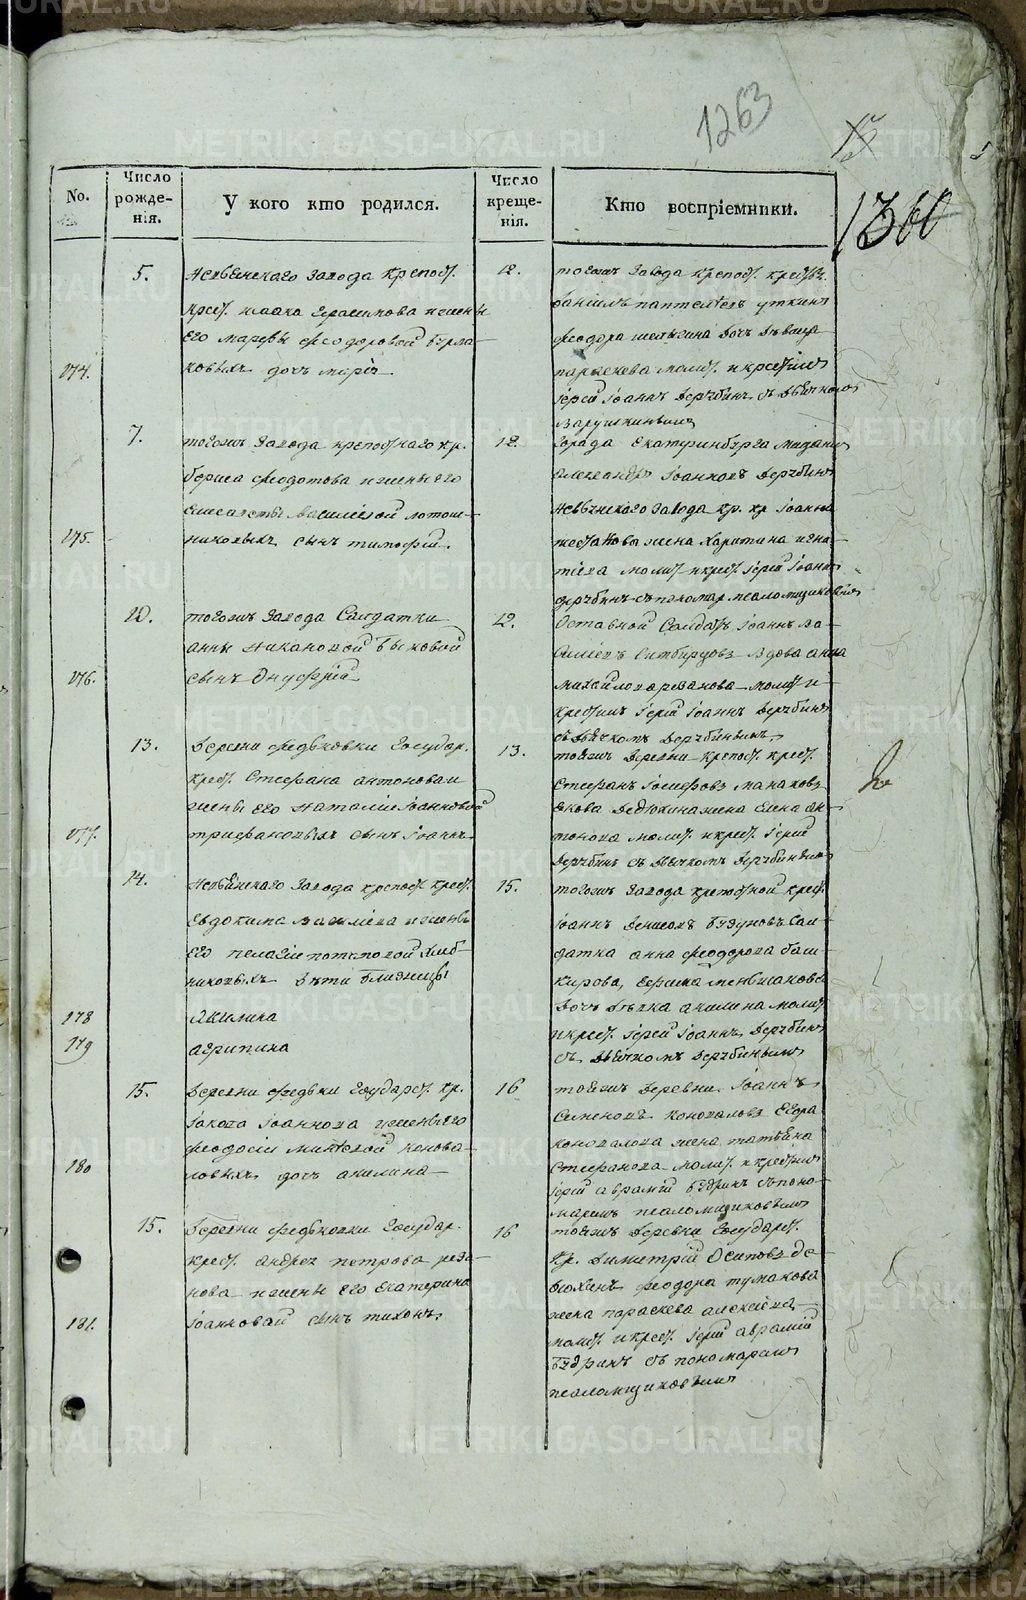 1263
1360
No.
Число рожде-нія.
У кого кто родился.
Число креще-нія.
Кто воспріемники.
5.
Невьенскаго завода крепост.
крест. Исаака Герасимова и жены
его Марфы Феодоровой Бурма-
174.
ковыхъ дочь Марія
12.
тогожъ завода крепост. крест.
Даніилъ Пантелеевъ Уткинъ
Феодора дочь девица
Параскева молит. и крестилъ
Іерей Іоаннъ Дерябинъ съ дьячкомъ
7.
тогожъ завода крепостнаго кр.
Бориса Федотова и жены его
Елисаветы Василіевой Лотош-
175.
никовыхъ сынъ Тимофей.
12.
Города Екатеринбурга мещанинъ
Александръ Іоанновъ Дерябинъ
Невьенскаго завода кр. кр. Іоанна
жена Харитина Игна-
тіева молит. и крест. Іерей Іоаннъ
Дерябинъ съ пономар. Псаломщиковымъ
10.
тогожъ завода Салдатки
Анны Никановой Быковой
176.
сынъ Онуфрій
12.
Оставной Салдатъ Іоаннъ Ва-
силіевъ вдова Анна
Михайлова молит. и
крестилъ Іерей Іоаннъ Дерябинъ
съ дьячкомъ Дерябинымъ.
13.
Деревни Федьковки Государ.
крест. Стефана Антонова и
жены его Наталіи Іоанновой
177.
Трифановыхъ сынъ Іоаннъ
13.
тояжъ деревни крепост. крест.
Стефанъ
жена Елена Ан-
тонова молит. и крест. Іерей
Дерябинъ съ дьячкомъ Дерябинымъ
14.
Невьенскаго завода крепост. крест.
Евдокима Василіева и жены
его Пелагіи Потаповой
никовыхъ дети близнецы
178
Акилина
179
Агрипина
15.
тогожъ завода крепостной крест.
Іоаннъ Денисовъ Сал-
датка Анна Феодорова Баш-
кирова, Ефима Меньшакова
дочь девка Акилина молит.
и крест. Іерей Іоаннъ Дерябинъ
съ дьячкомъ Дерябинымъ
15.
Деревни Федьки Государст. кр.
Іакова Іоаннова и жены его
Феодосіи Конова-
180
ловыхъ дочь Акилина
16
тояжъ Деревни Іоаннъ
Семеновъ Коноваловъ Егора
Коновалова жена Татьяна
Стефанова молит. и крестилъ
Іерей Аврамій Бударинъ съ поно-
маремъ Псаломщиковымъ
15.
Деревни Федьковки Государ.
крест. Андрея Петрова Реза-
нова и жены его Екатерины
181.
Іоанновой сынъ Тихонъ
16
тояжъ Деревни Государст.
кр. Димитрій Осиповъ Де-
дюхинъ Феодора Тумакова
жена Параскева Алексіева
молит. и крест. Іерей Аврамій
Бударинъ съ пономаремъ
Псаломщиковымъ
METRIKI.GASO-URAL.RU